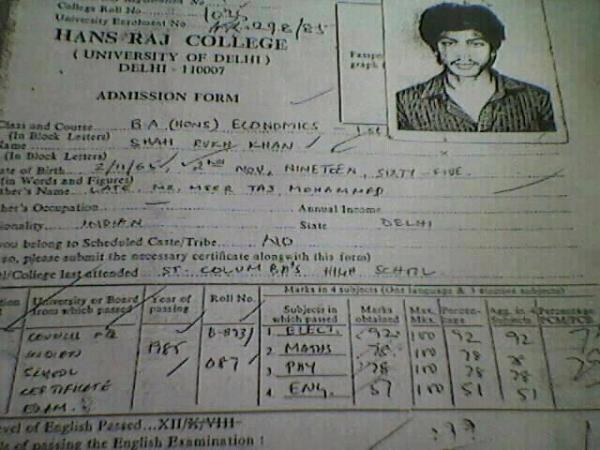 College Roll No.
University Enrolment No.
HANS RAJ COLLEGE
( UNIVERSITY OF DELHI )
DELHI - 110007
ADMISSION FORM
Class and Course B.A (HONS) ECONOMICS - I st
(In Block Letters)
Name SHAH RUKH KHAN
(In Block Letters)
Date of Birth 2/11/65, 2nd NOV, NINETEEN, SIXTY-FIVE.
(in Words and Figures)
Father's Name LATE MR. MEER TAJ MOHAMMED
Occupation Annual Income
INDIAN State DELHI
you belong to Scheduled Caste/Tribe NO
so, please submit the necessary certificate alongwith this form)
School/College last attended ST. COLUMBA'S HIGH SCHOOL
Marks in 4 subjects (One language & 3 elective subjects)
University or Board from which passed Year of passing Roll No. Subjects in which passed Marks obtained Max. Percentage
COUNCIL 1 ELECT. 92 100 92 92
INDIAN 1985 2 MATHS 78 100 78 78
SCHOOL 087 3 PHY 78 100 78 78
CERTIFICATE 4 ENG. 51 100 51 51
EXAM.
Level of English Passed...XII/X/VIII
of passing the English Examination :
???